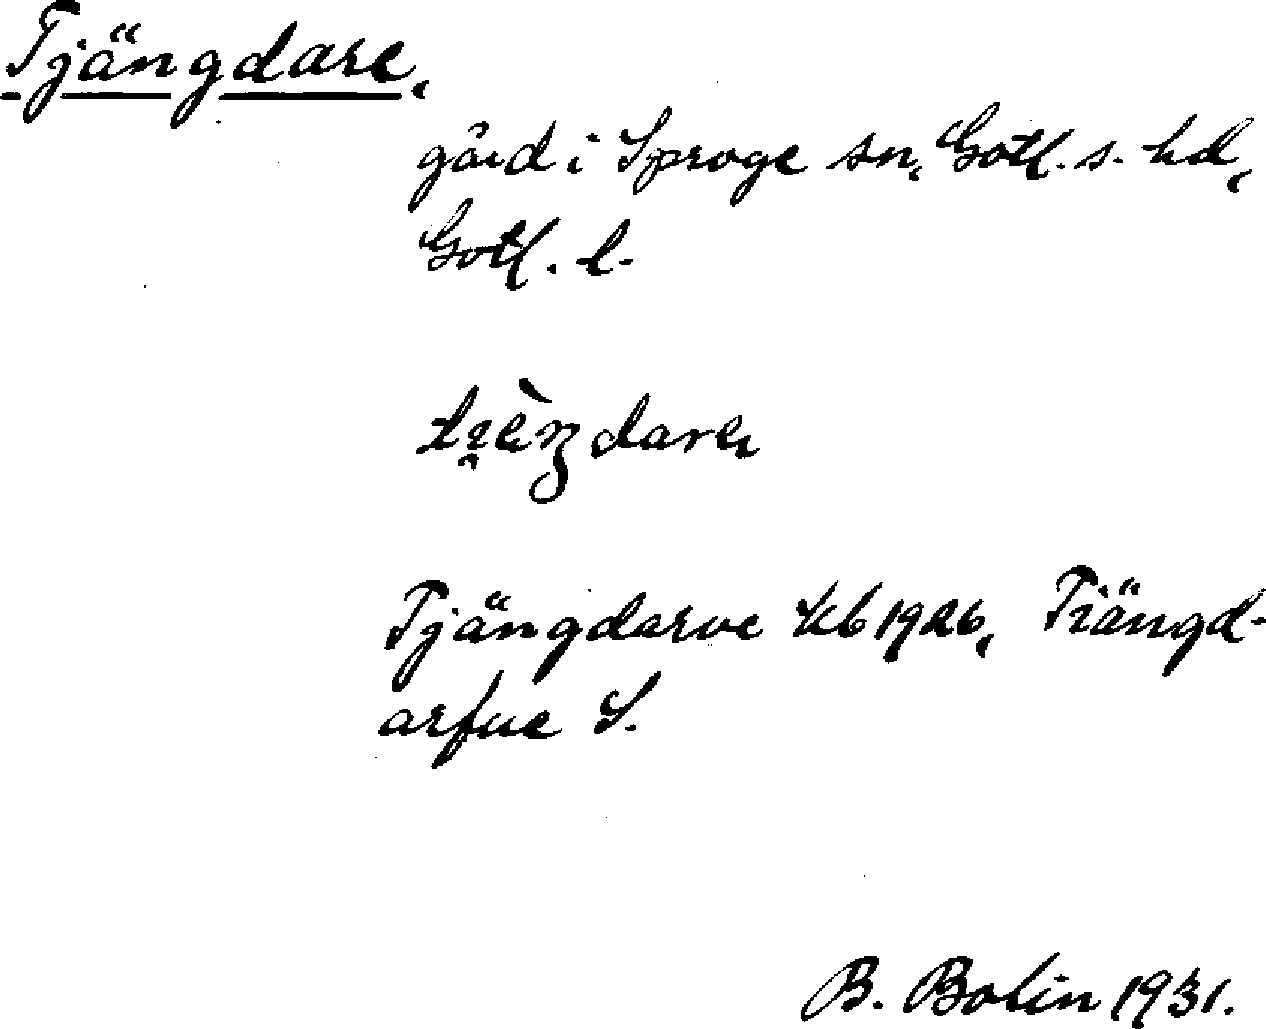 Tjängdare,
gård i Sproge sn, Gotl. s. hd,
Gotl. l.
Tjängdarve kb 1926, Tiängd-
arfue S.
B. Bolin 1931.